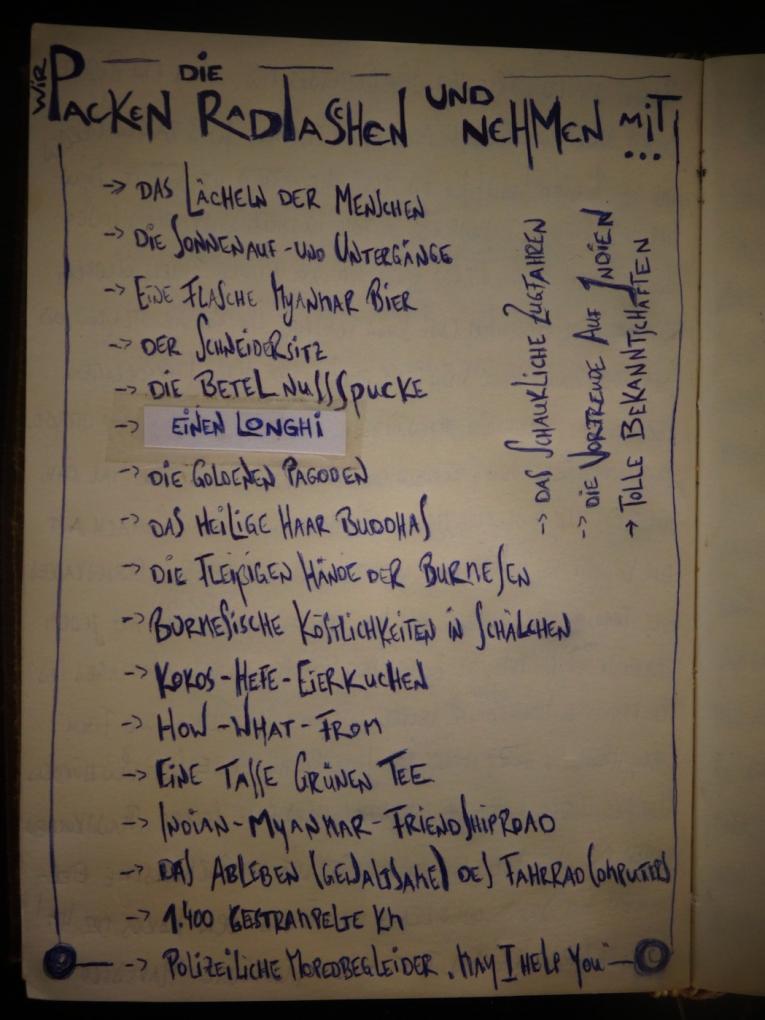 WIR PACKEN DIE RADTASCHEN UND NEHMEN MIT ...
-> DAS LÄCHELN DER MENSCHEN
-> DIE SONNENAUF-UND UNTERGÄNGE
-> EINE FLASCHE MYANMAR BIER
-> DER SCHNEIDERSITZ
-> DIE BETELNUSSSPUCKE
-> EINEN LONGHI
-> DIE GOLDENEN PAGODEN
-> DAS HEILIGE HAAR BUDDHAS
-> DIE FLEIßIGEN HÄNDE DER BURMESEN
-> BURMESISCHE KÖSTLICHKEITEN IN SCHÄLCHEN
-> KOKOS-HEFE-EIERKUCHEN
-> HOW-WHAT-FROM
-> EINE TASSE GRÜNEN TEE
-> INDIAN-MYANMAR-FRIENDSHIPROAD
-> DAS ABLEBEN (GEWALTSAME) DES FAHRRADCOMPUTERS
-> 1.400 GESTRAMPELTE KM
-> POLIZEILICHE MOPEDBEGLEIDER "MAY I HELP YOU"
-> DAS SCHAUKLICHE ZUGFAHREN
-> DIE VORFREUDE AUF INDIEN
-> TOLLE BEKANNTSCHAFTEN